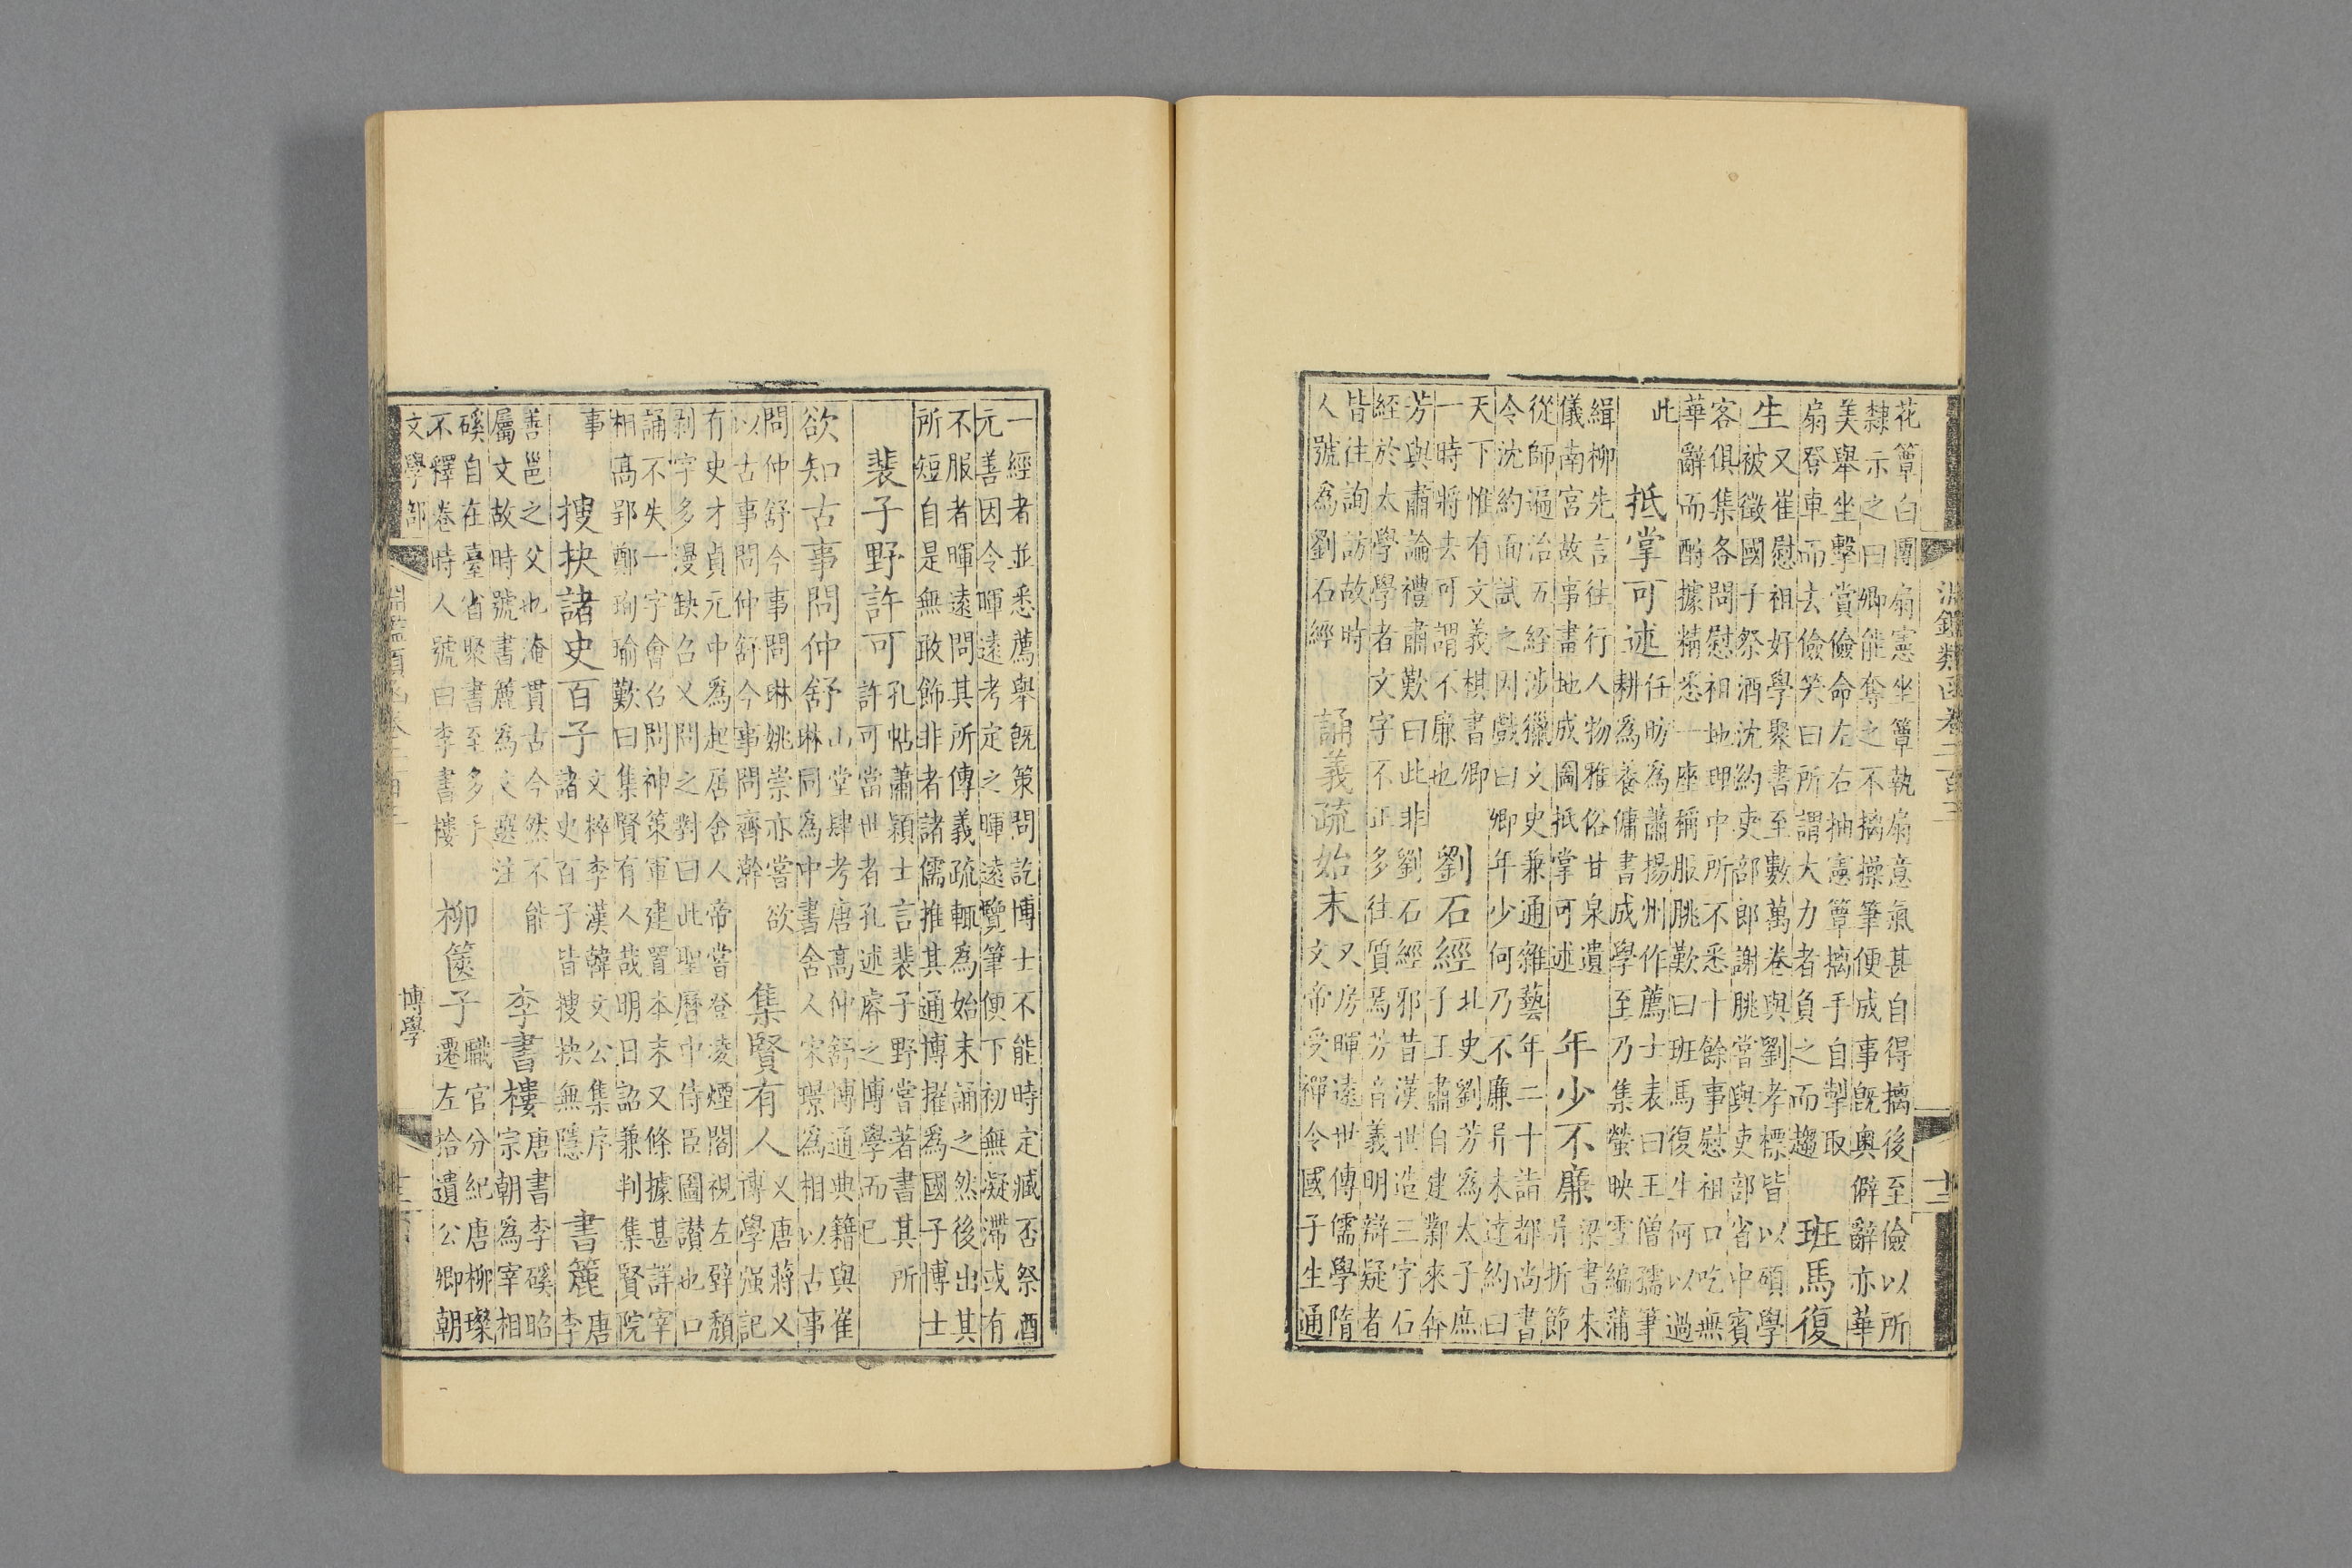 淵鑑類函卷二百三
花簟白團扇憲坐簟執扇意氣甚自得摛後至儉以所
隸示之曰卿能奪之不摛操筆便成事旣奧僻辭亦華
美舉坐擊賞儉命左右抽憲簟摛手自掣取
扇登車而去儉笑曰所謂大力者負之而趨
班馬復
生
又崔慰祖好學聚書至數萬卷與劉孝標皆以碩學
被徵國子祭酒沈約吏部郎謝朓嘗與吏部省中賓
客俱集各問慰祖地理中所不悉十餘事慰祖口吃無
華辭而酧據精悉一座稱服朓歎曰班馬復生何以過
此
抵掌可述
任昉為蕭揚州作薦士表曰王僧孺筆
耕為養傭書成學至乃集螢映雪編蒲
緝柳先言往行人物雅俗甘泉遺
儀南宮故事畫地成圖抵掌可述
年少不廉
梁書朱
异折節
從師遍治五經涉獵文史兼通雜藝年二十詣都尚書
令沈約面試之因戲曰卿年少何乃不廉异未達約曰
天下惟有文義棋書卿
一時將去可謂不廉也
劉石經
北史劉芳為太子庶
子王肅自建鄴來奔
芳與肅論禮肅歎曰此非劉石經邪昔漢世造三字石
經於太學學者文字不正多往質焉芳音義明辯疑者
皆往詢訪故時
人號為劉石經
誦義疏始末
又房暉遠世傳儒學隋
文帝受禪令國子生通
一經者並悉薦舉旣策問訖博士不能時定臧否祭酒
元善因令暉遠考定之暉遠覽筆便下初無凝滯或有
不服者暉遠問其所傳義疏輒為始末誦之然後出其
所短自是無敢飾非者諸儒推其通博擢為國子博士
裴子野許可
孔帖蕭穎士言裴子野嘗著書其所
許可當世者孔述睿之博學而已
欲知古事問仲舒
山堂肆考唐高仲舒博通典籍與崔
琳同為中書舍人宋璟為相以古事
問仲舒今事問琳姚崇亦嘗欲
以古事問仲舒今事問齊澣
集賢有人
又唐蔣乂
博學强記
有史才貞元中為起居舍人帝嘗登凌煙閣視左壁頹
剥字多漫缺召乂問之對曰此聖曆中侍臣圖讃也口
誦不失一字會召問神策軍建置本末乂條據甚詳宰
相高郢鄭珣瑜歎曰集賢有人哉明日詔兼判集賢院
事
搜抉諸史百子
文粹李漢韓文公集序
諸史百子皆搜抉無隱
書簏
唐
李
善邕之父也淹貫古今然不能
屬文故時號書簏為文選注
李書樓
唐書李磎昭
宗朝為宰相
磎自在臺省聚書至多手
不釋卷時人號曰李書樓
柳篋子
職官分紀唐柳璨
遷左拾遺公卿朝
文學部
博學